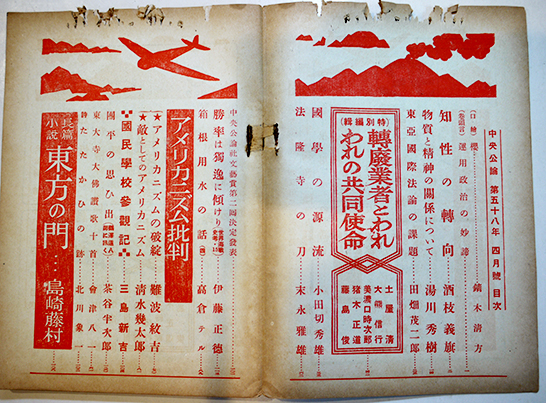 中央公論 第五十八年 四月號 目次
(口繪) 櫻 鏑木清方
(卷頭言) 運用政治の妙諦
知性の轉向 酒枝義旗
物質と精神の關係について 湯川秀樹
東亞國際法論の課題 田畑茂二郎
(特別編輯)
轉廢業者とわれ
われの共同使命
土屋清
大熊信行
美濃口時次郎
猪木正道
藤島俊
國學の源流 小田切秀雄
法隆寺の刀 末永雅雄
中央公論社文藝賞第二回決定發表
勝率は獨逸に傾けり 伊藤正德
箱根用水の話 高倉テル
アメリカニズム批判
★アメリカニズムの破綻 難波紋吉
★敵としてのアメリカニズム 清水幾太郎
國民學校參觀記 三島新吉
國平の思ひ出 茶谷半次郎
東大寺大佛讃歌十首 會津八一
詩 たたかひの跡 北川象一
長篇
小說
東方の門… 島崎藤村